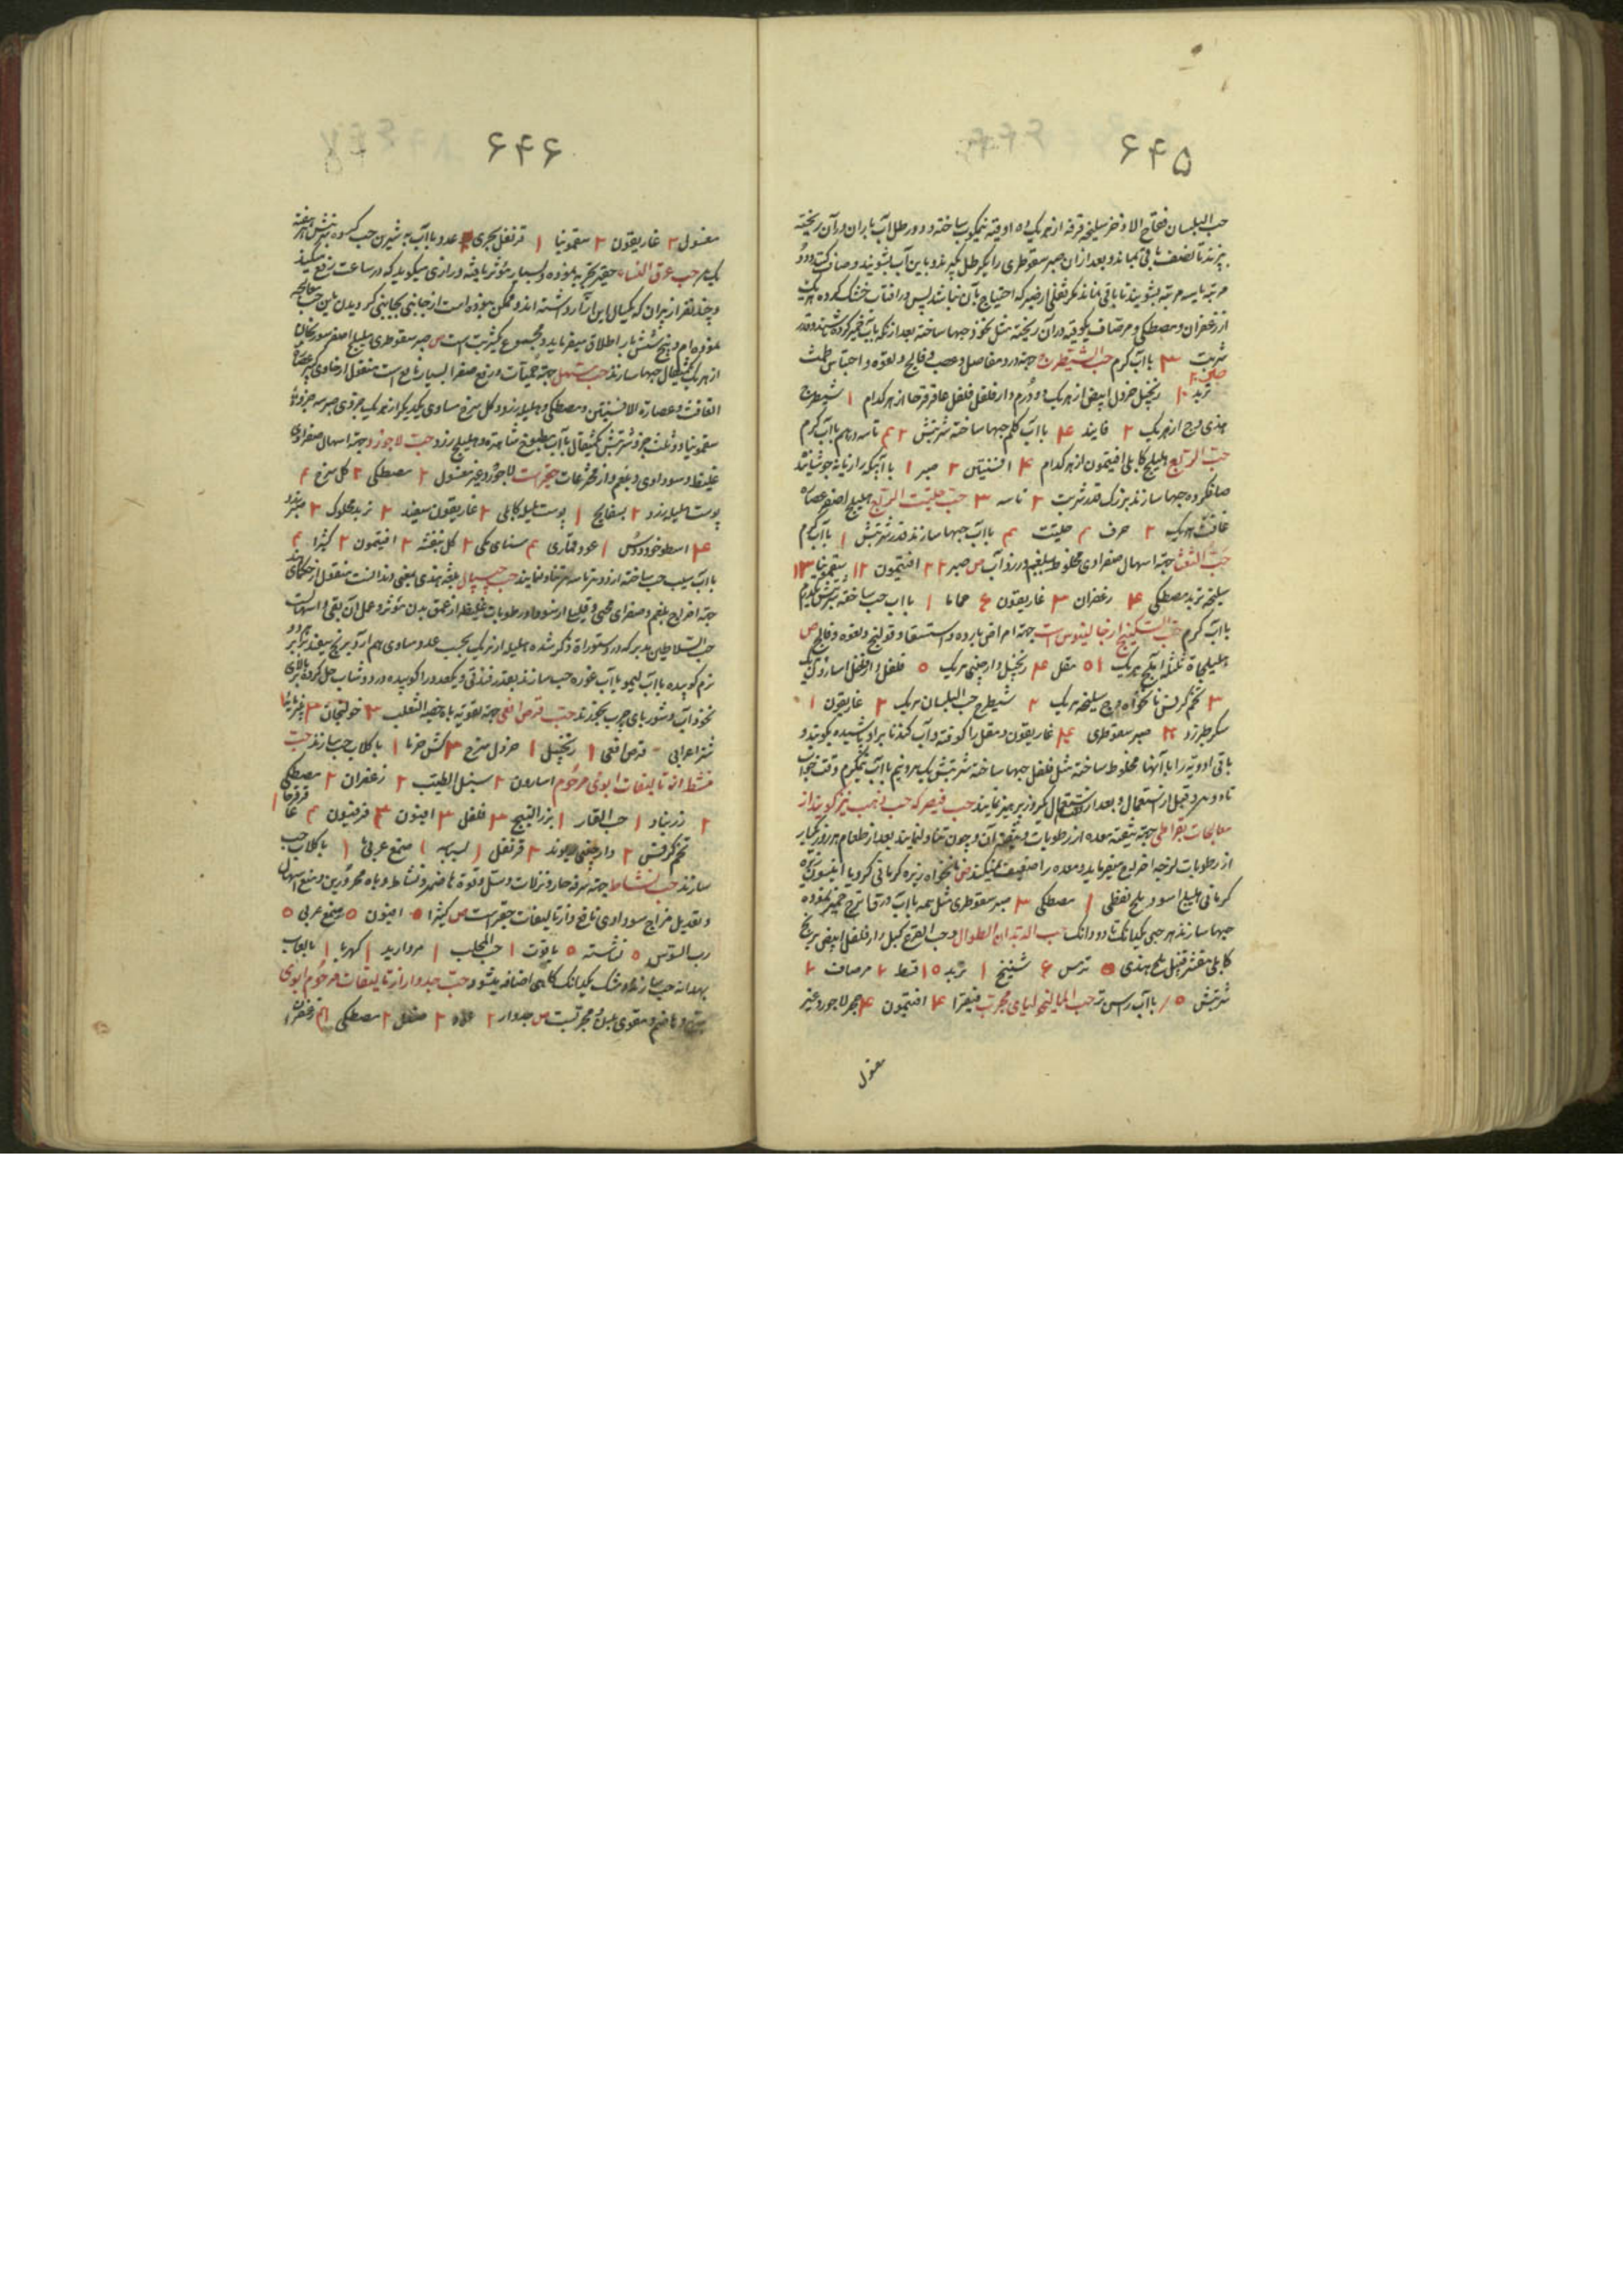 ۶۴۵
حب البلسان فقاح الاذخر سلیخه قرفه از هریک ۵ اوقیه نیمکوب ساخته در دو رطل آب باران در آن ریخته
بپزند تا نصف باقی بماند و بعد از آن صبر سقوطری را یکرطل بگیرند و باین آب بشویند و صاف کنند
مرتبه یا سه مرتبه بشویند تا باقی نماند مگر ثفلی از صبر که احتیاج بآن نباشد پس در آفتاب خشک کرده
از زعفران و مصطکی و مر صاف یکوقیه در آن ریخته مثل نخود حبها ساخته بعد از آنکه بآب خمیر کرده باشند و قدر
شربت ۳ با آب گرم حب الشیطرج جهة درد مفاصل و عصب و فالج و لقوه و احتباس طمث
تربد ۱۰ زنجبیل خردل ابیض از هریک دو درم دار فلفل فلفل عاقرقرحا از هرکدام ۱ شیطرج
هندی وج از هریک ۲ فانید ۴ با آب کلم حبها ساخته شربتش ۲ تا سه درهم با آب گرم
حب الربع هلیلج کابلی افتیمون از هرکدام ۴ افسنتین ۲ صبر ۱ با آبیکه رازیانه جوشانند
صاف کرده حبها سازند بزرک قدر شربت ۲ تا سه ۳ حب حلتیت الربع هلیلج اصفر عصاره
غافث هریک ۲ حرف ۲ حلتیت ۳ با آب حبها سازند قدر شربتش ۱ با آب گرم
جهة اسهال صفراوی مخلوط ببلغم و زرد آب ص صبر ۲۲ افتیمون ۱۲ سقمونیا ۱۳
سلیخه تربد مصطکی ۴ زعفران ۳ غاریقون ۶ حماما ۱ با آب حب ساخته شربتش
با آب گرم حب السکبینج از جالینوس است جهة امراض بارده و استسقا و قولنج و لقوه و فالج ص
هریک ۱۵ مقل ۴ زنجبیل دارچینی هریک ۵ فلفل دارفلفل اسارون
۳ تخم کرفس نانخواه وج سلیخه هریک ۲ شیطرج حب البلسان هریک ۲ غاریقون ۱
سکر طبرزد صبر سقوطری غاریقون و مقل را کوفته در آب کنند تا بر او پاشیده بکوبند و
باقی ادویه را با آنها مخلوط ساخته مثل فلفل حبها ساخته شربتش یک درم و نیم با آب نیمگرم وقت خواب
تا دو درم و قبل از استعمال و بعد از استعمال یکروز پرهیز نمایند حب قیصر که حب ذهب نیز گویند از
معالجات بقراطی جهة تنقیه معده از رطوبات و تقویت آن و چون تناول نمایند بعد از طعام هر روز یکبار
از رطوبات لزجه اخراج میفرماید و معده را ضعیف نمیکند ص نانخواه زیره کرمانی کرویا انیسون
کرمانی هلیلج اسود ملح نفطی ۱ مصطکی ۳ صبر سقوطری مثل همه با آب ورق اترج خمیر نموده
حبها سازند هر حبی یکدانک تا دو دانک حب الدیدان الطوال و حب القرع کبیل دارفلفل ابیض برنج
کابلی مقشر قنبیل ملح هندی ۵ ترمس ۶ شیح ۱ تربد ۱۵ قسط ۲ مر صاف ۲
شربتش ۵ با آب حب المالیخولیای مجرب فیقرا ۴ افتیمون ۴ حجر لاجورد غیر
مغسول
۶۴۶
مغسول ۲ غاریقون ۲ سقمونیا ۱ قرنفل بحری عدد با آب به شیرین حب کرده شربتش هر هفته
یکدرم حب عرق النساء حقیر تجربه نموده و بسیار مؤثر یافته و رازی میگوید که در ساعت رفع میکند
و چند نفر از پیران که یکسال این آزار داشته اند و ممکن نبوده است از جانبی بجانبی گردیدن باین حب معالجه
نموده ام و پنج شش بار اطلاق میفرماید و مجموع یکشربت است ص صبر سقوطری هلیلج اصفر سورنجان
از هر یک یکمثقال حبها سازند حب مسهل جهة حمیات و رفع صفرا بسیار نافع است منقول از حاوی کبیر عصاره
الغافث و عصارة الافسنتین و مصطکی و هلیله زرد و گل سرخ مساوی یکدیگر از هریک جزوی صبر سه جزو
سقمونیا دو ثلث جزو شربتش یکمثقال با آب مطبوخ شاهتره و هلیله زرد حب لاجورد جهة اسهال صفراوی
غلیظ و سوداوی و بلغم و از مخترعات حقیر است لاجورد غیر مغسول ۲ مصطکی ۲ گل سرخ ۴
پوست هلیله زرد ۲ بسفایج ۱ پوست هلیله کابلی ۲ غاریقون سفید ۲ تربد محکوک ۲ صبر زرد
۴ اسطوخودوس ۱ عود قماری ۳ سنای مکی ۲ گل بنفشه ۲ افتیمون ۲ کتیرا ۲
با آب سیب حب ساخته از دو درم تا سه درم تناول نمایند حب جیپال بلغة هندی یعنی دند است منقول از حکمای هند
جهة اخراج بلغم و صفرای محی و قلیلی از سودا و رطوبات غلیظه از عمق بدن مؤثر و عمل آن بقی و اسهالست
حب السلاطین مدبر که در دستورات ذکر شده هلیله از هریک بحسب عدد مساوی هم آرد برنج سفید برابر
نرم کوبیده با آب لیمو یا آب غوره حب سازند بقدر فندقی و یکعدد را کوبیده در دوشاب حل کرده
نخوداب و شوربای چرب بخورند حب قرص افعی جهة تقویة باه خصیة الثعلب ۳ خولنجان ۳
شتر اعرابی قرص افعی ۱ زنجبیل ۱ خردل سرخ ۳ کشن خرما ۱ با گلاب حب سازند حب
نشاط از تالیفات ابوی مرحوم اسارون ۲ سنبل الطیب ۲ زعفران ۲ مصطکی
۲ زرنباد ۱ حب الغار ۱ بزر البنج ۳ فلفل ۳ افیون ۳ فرفیون ۲ عاقرقرحا ۱
تخم کرفس ۲ دارچینی ریوند ۲ قرنفل ۱ بسباسه ۱ صمغ عربی ۱ با گلاب حب
سازند حب النشاط جهة سرفه حار و نزلات و سل و قوة هاضمه و نشاط و باه محرورین و منع اسهال
و تعدیل مزاج سوداوی نافع و از تالیفات حقیر است ص کتیرا ۵ افیون ۵ صمغ عربی ۵
رب السوس ۵ نشاسته ۵ یاقوت ۱ حب المحلب ۱ مروارید ۱ کهربا ۱ بلعاب
بهدانه حب سازند و مشک یکدانک گاهی اضافه میشود حب جدوار از تالیفات مرحوم ابوی
و هاضم و مقوی بدن و مجربست ص جدوار ۲ عود ۲ صندل ۲ مصطکی زعفران